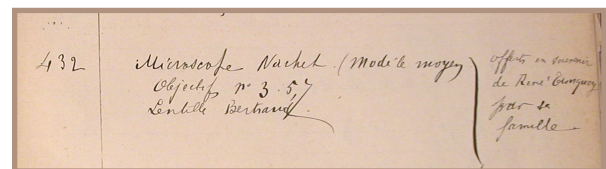 432
Microscope Nachet. (Modèle moyen)
Objectifs n° 3. 5. 7
Lentille Bertrand.
offerts en souvenir
de René
par sa
famille